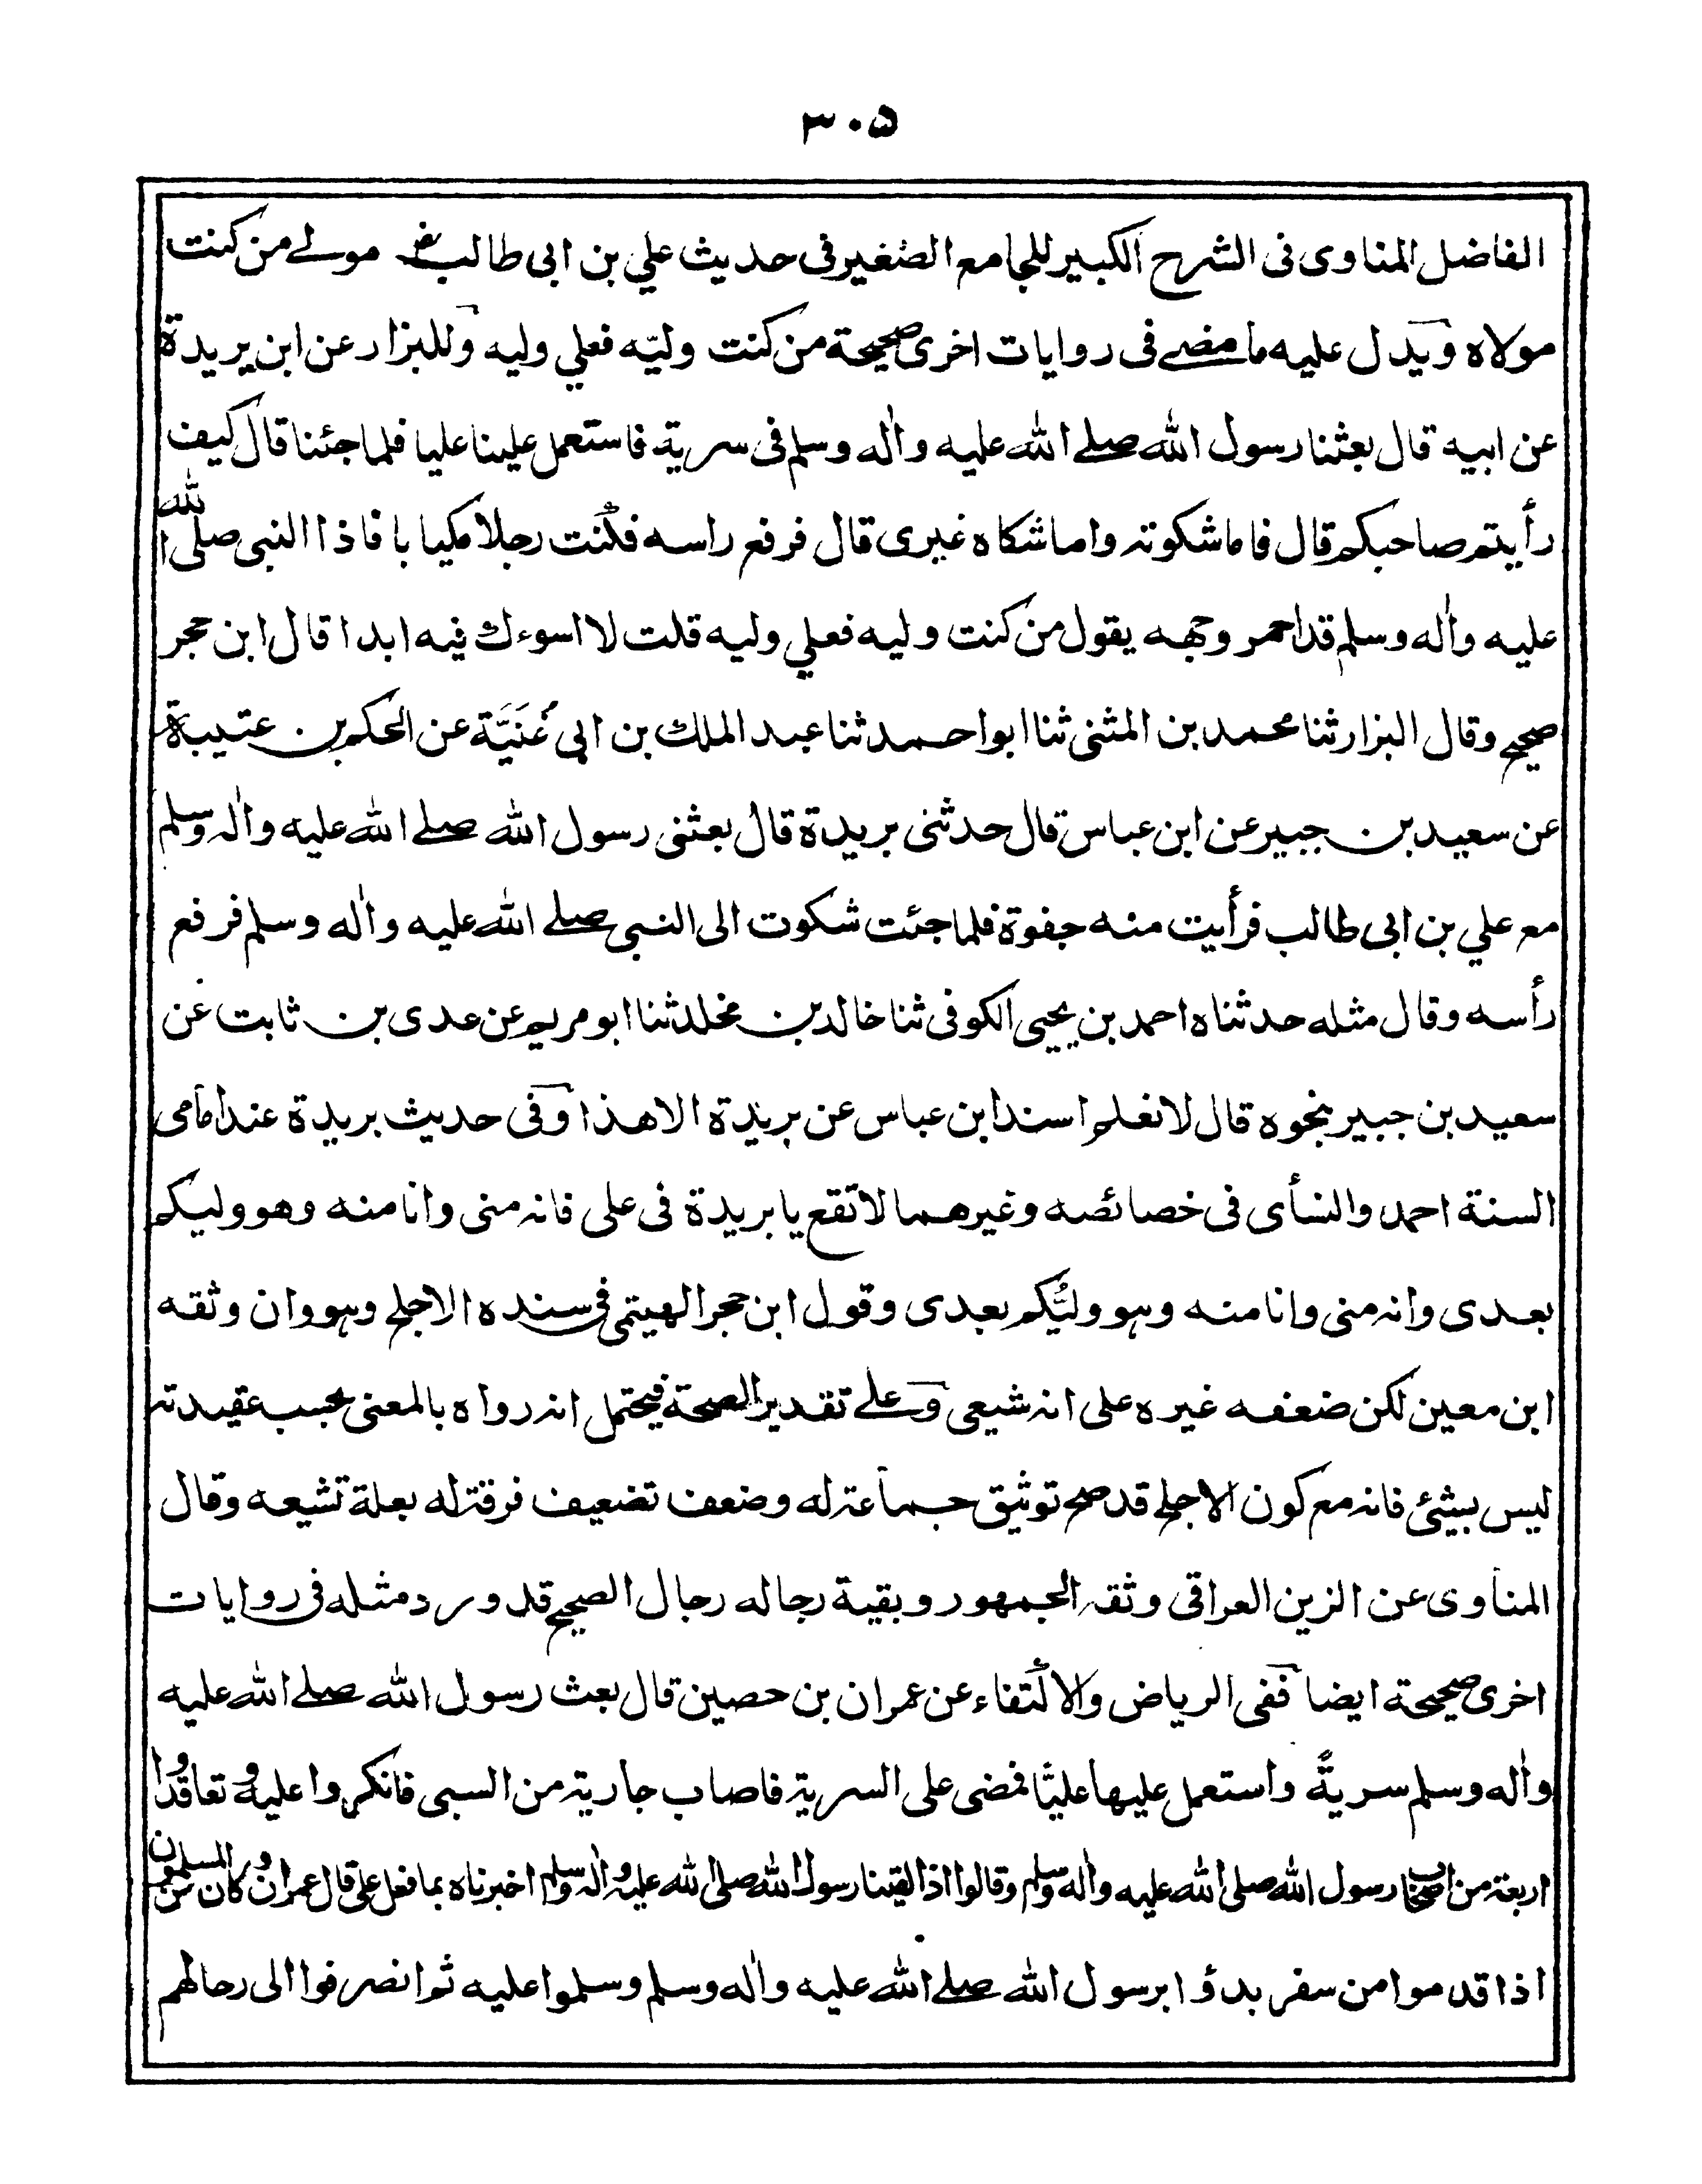 ٣٠٥
الفاضل المناوى فى الشرح الكبير للجامع الصغير فى حديث علي بن ابى طالب مولے من كنت
مولاه ويدل عليه ما مضے فى روايات اخرى صحيحة من كنت وليّه فعلي وليه وللبزار عن ابن بريدة
عن ابيه قال بعثنا رسول الله صلے الله عليه واٰله وسلم فى سرية فاستعمل علينا عليا فلما جئنا قال كيف
رأيتم صاحبكم قال فاما شكوته واما شكاه غيرى قال فرفع راسه فكنت رجلا مكيابا فاذا النبى صلى الله
عليه واٰله وسلم قد احمر وجهه يقول من كنت وليه فعلي وليه قلت لا اسوءك فيه ابدا قال ابن حجر
صحيح وقال البزار ثنا محمد بن المثنى ثنا ابو احمد ثنا عبد الملك بن ابى غَنَيَّة عن الحكم بن عتيبة
عن سعيد بن جبير عن ابن عباس قال حدثنى بريدة قال بعثنى رسول الله صلے الله عليه واٰله وسلم
مع علي بن ابى طالب فرأيت منه جفوة فلما جئت شكوت الى النبى صلے الله عليه واٰله وسلم فرفع
رأسه وقال مثله حدثناه احمد بن يحيى الكوفى ثنا خالد بن مخلد ثنا ابو مريم عن عدى بن ثابت عن
سعيد بن جبير بنحوه قال لا نعلم اسند ابن عباس عن بريدة الا هذا وفى حديث بريدة عند امامى
السنة احمد والنسأى فى خصائصه وغيرهما لا تقع يا بريدة فى على فانه منى وانا منه وهو وليكم
بعدى وانه منى وانا منه وهو وليُّكم بعدى وقول ابن حجر الهيتمى فى سنده الاجلح وهو وان وثقه
ابن معين لكن ضعفه غيره على انه شيعى وعلے تقدير الصحة فيحتمل انه رواه بالمعنى بحسب عقيدته
ليس بشئ فانه مع كون الاجلح قد صح توثيق جماعة له وضعف تضعيف فرقة له بعلة تشيعه وقال
المناوى عن الزين العراقى وثقه الجمهور وبقية رجاله رجال الصحيح قد ورد مثله فى روايات
اخرى صحيحة ايضا ففى الرياض والاكتفاء عن عمران بن حصين قال بعث رسول الله صلے الله عليه
واٰله وسلم سريةً واستعمل عليها عليًّا فمضى على السرية فاصاب جارية من السبى فانكروا عليه وتعاقدوا
اربعة من اصحاب رسول الله صلى الله عليه واٰله وسلم وقالوا اذا لقينا رسول الله صلى الله عليه واٰله وسلم اخبرناه بما فعل على قال عمران وكان المسلمون
اذا قدموا من سفر بدؤا برسول الله صلے الله عليه واٰله وسلم وسلموا عليه ثم انصرفوا الى رحالهم